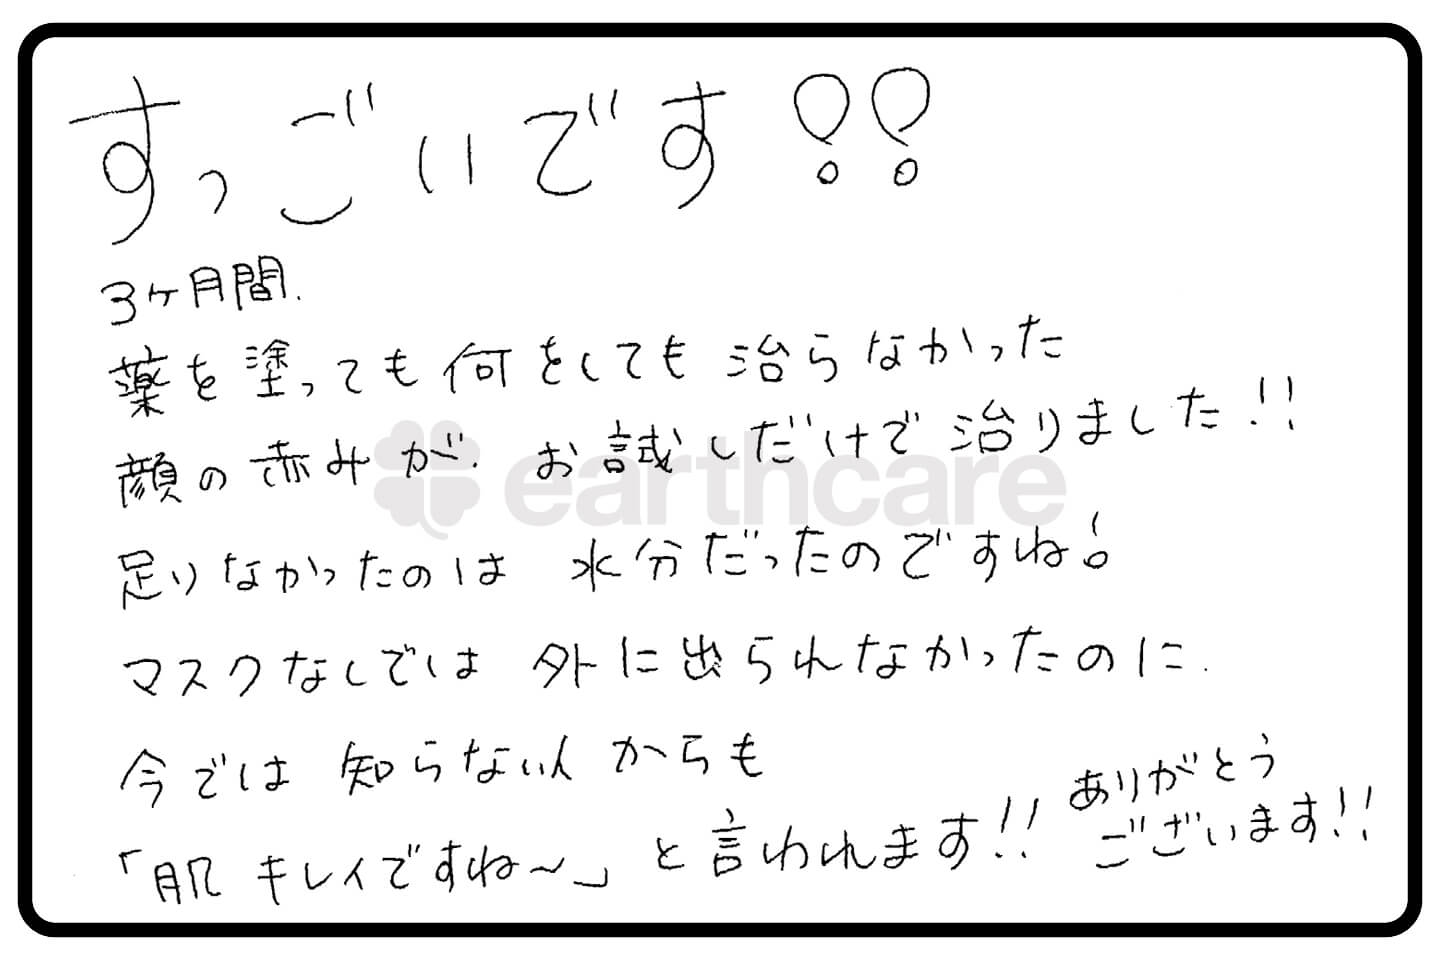 すっごいです!!
3ヶ月間.
薬を塗っても何をしても治らなかった
顔の赤みが.お試しだけで治りました!!
earthcare
足りなかったのは 水分だったのですね!
マスクなしでは 外に出られなかったのに.
今では 知らない人からも
「肌キレイですね~」と言われます!!
ありがとう
ございます!!